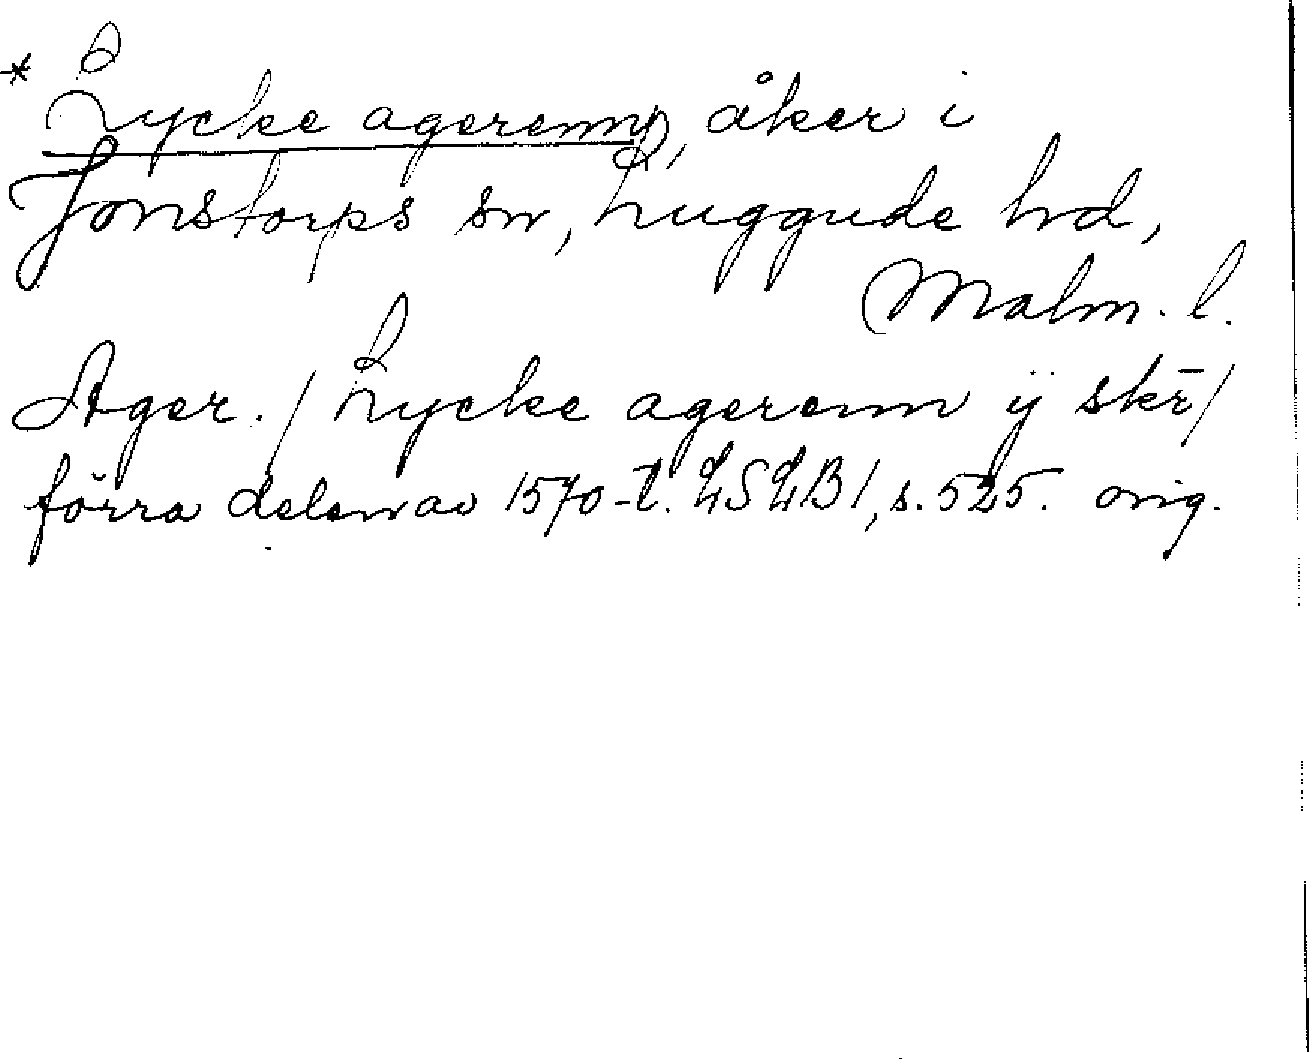 * Lycke agerenn, åker i
Jonstorps sn, Luggude hd,
Malm. l.
Ager. / Lycke agerenn ÿ skr̄ /
förra delen av 1570-t. LSLB 1, s. 525. orig.